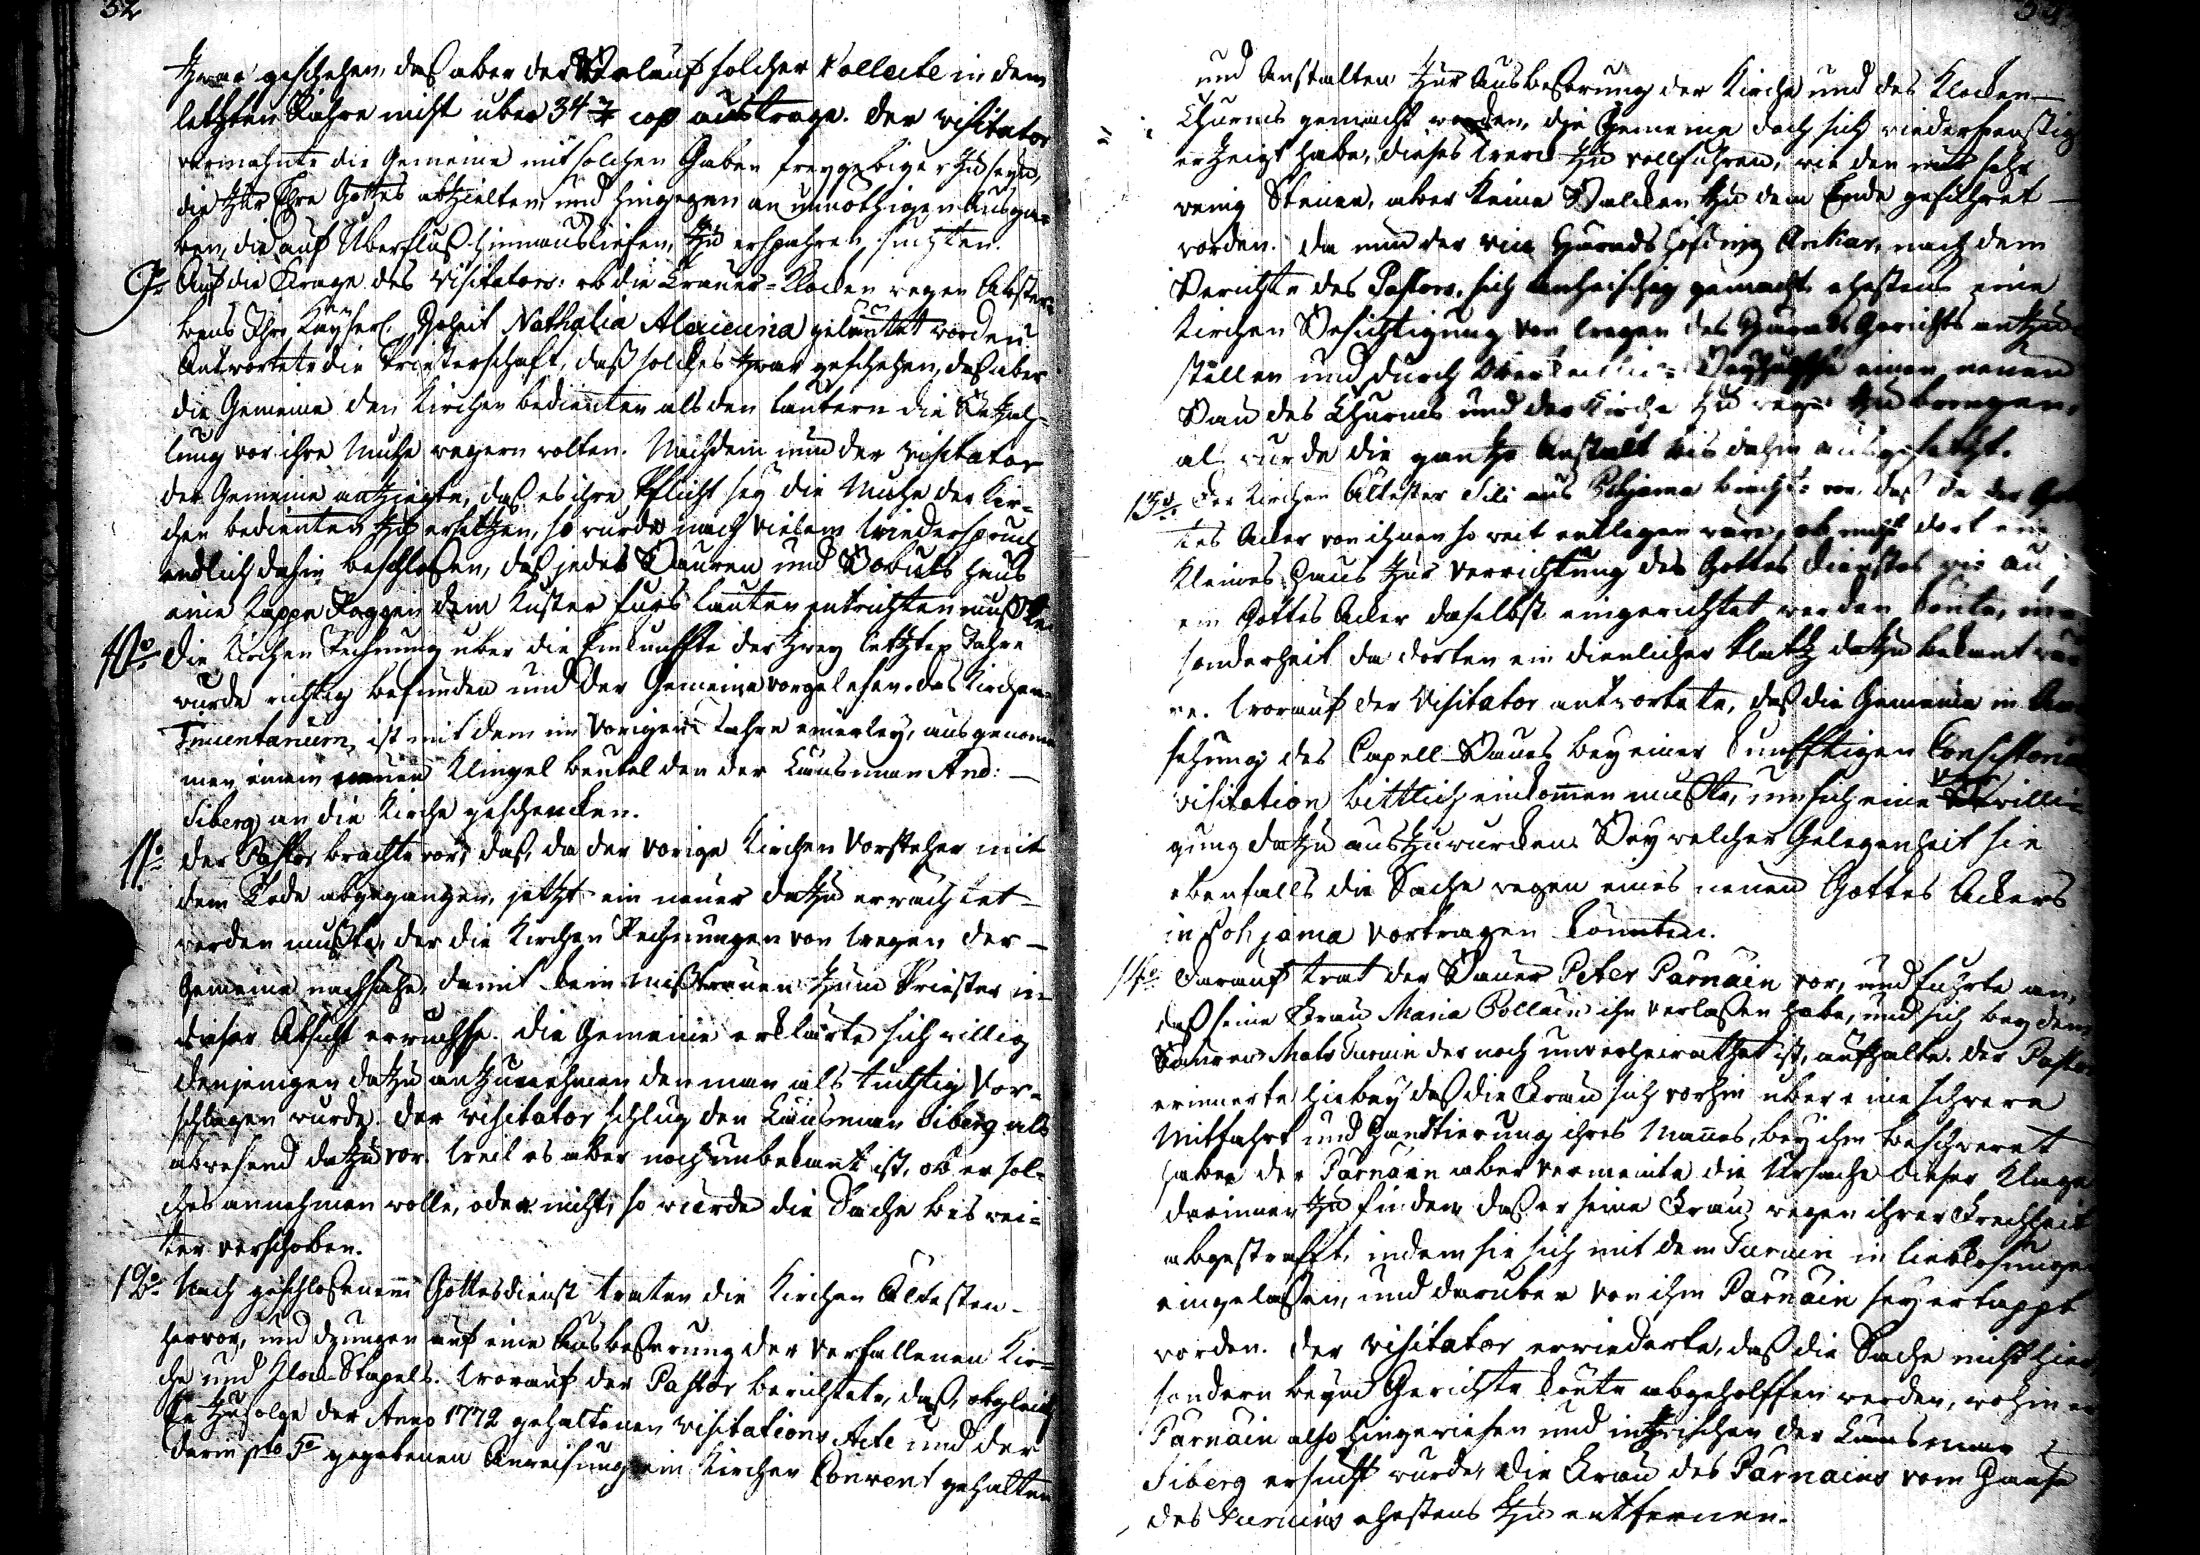 52
tzwar geschehen, daß aber der Verlauf solcher Collecte in dem
letzten Jahre nicht uber 34 cop austrage. der visitator
vermahnte die Gemeine mit solchen Gaben freygebiger zu seyn,
die zur Ehre Gottes abzielten und hingegen an unnothigen Ausga=
ben, die auf Uberfluß hinnausliefen, zu ersparen suchten.
9o Auf die Frage des Visitators: ob die Trauer-Klocken wegen Abster=
bens Ihro Kayserl. Hoheit Nathalia Alexiewna gelautet worden
Antwortete die Priesterschaft, daß solches tzwar geschehen, daß aber
die Gemeine den Kirchen bedienten als den Lautern die Betzah=
lung vor ihre Muhe wegern wolten. Nachdem nun der visitator
der Gemeine antzeigte, daß es ihre Pflicht sey die Muhe der Kir=
chen bedienten zu ersetzen, so wurde nach vielem Wiederspruch
endlich dahin beschloßen, daß jedes Bauren und Bobuls Haus
eine Kappe Roggen dem Kuster furs Lauten entrichten muste
10o Die Kirchen Rechnung uber die Einkunffte der zwey letzten Jahre
wurde richtig befunden und der Gemeine vorgelesen. das Kirchen
Inventarium, ist mit dem im Vorigen Jahre einerley, ausgenom
men einem neuen Klingel Beutel den der Länsman And:
Siberg an die Kirche geschencken.
11o Der Pastor brachte vor, daß, da der vorige Kirchen Vorsteher mit
dem Tode abgegangen, jetzt ein neuer datzu erwachtet
werden muste, der die Kirchen Rechnungen von wegen der
Gemeine nachsähe, damit kein Mißtrauen zum Priester in
dieser Absicht erwachse. Die Gemeine erklarte sich willig
denjenigen datzu antzunehmen den man als tuchtig vor=
schlagen wurde. Der visitator schlug den Länsman Siberg als
abwesend datzu vor. Weil es aber noch unbekant ist, ob er sol=
ches annehmen wolle, oder nicht, so wurde die Sache bis wei=
ter verschoben.
12o Nach geschloßenem Gottesdienst traten die Kirchen Ältesten
hervor, und drungen auf eine Ausbeßerung der verfallenen Kir=
che und Klock-Stapels. Worauf der Pastor berichtete, daß, obgleich
zu Folge der Anno 1772 gehaltenen visitations Acte und der
darin pto 5o gegebenen Anweisung ein Kirchen Convent gehalten
und Anstalten zur Ausbeßerung der Kirche und des Klocken
Thurms gemacht worden, die Gemeine doch sich wiederspenstig
ertzeigt habe, dieses Werck zu vollfuhren, wie den auch sehr
wenig Steine, aber keine Balcken zu dem Ende gefuhret
worden. Da nun der vice Häradshöfding Ankar, nach dem
Berichte des Pastors, sich anheischig gemacht ehestens eine
Kirchen Besichtigung von wegen des Härads Gerichts antzu=
stellen und durch Beyhulffe einen neuen
Bau des Thurms und der Kirche zu wege zu bringen,
als wurde die gantze Anstalt bis dahin ausgesetzt.
13o Der Kirchen Ältester Sili aus Pohjama brachte vor, daß da der Got
tes Acker von ihnen so weit entlegen ware, ob nicht dort ein
kleines Haus zur Verrichtung des Gottes dienstes wie auch
ein Gottes Acker daselbst eingerichtet werden konte, in
sonderheit da dorten ein dienlicher Platz datzu bekant wä
re. Worauf der Visitator antwortete, daß die Gemeine in An
sehung des Capell-Baues bey einer kunfftigen Consistorial
visitation bittlich einkommen muste, um sich eine Bewilli=
gung datzu austzuwurcken. Bey welcher Gelegenheit sie
ebenfalls die Sache wegen eines neuen Gottes Ackers
in Pohjama vortragen konnten.
14o Darauf trat der Bauer Peter Pärnäin vor, und fuhrte an,
daß seine Frau Maria Pollain ihn verlaßen habe, und sich bey dem
Bauren Mats Turuin der noch unverheirathet ist, aufhalte. der Pastor
erinnerte hiebey daß die Frau sich vorhin uber eine schwere
Mitfahrt und Handtierung ihres Mannes, bey ihm beschweret
habe. der Pärnäin aber vermeinte die Ursache dieser Klage
darinnen zu finden, daß er seine Frau, wegen ihrer Frechheit
abgestrafft, indem sie sich mit dem Turuin in Liebkosungen
eingelaßen, und daruber von ihm Pärnäin sey ertappt
worden. Der visitator erwiederte, daß die Sache nicht hier,
sondern beym Gerichte konte abgeholffen werden, wohin er
Pärnäin also hingewiesen und intzwischen der Länsman
Siberg ersucht wurde, die Frau des Pärnäins vom Hause
des Turuins ehestens zu entfernen.